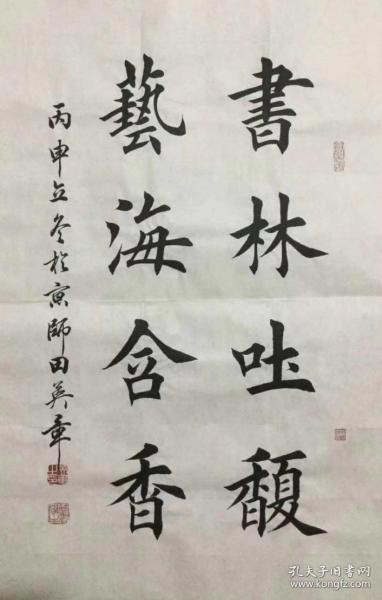 書林吐馥
藝海含香
丙申立冬於京師田英章
孔夫子旧书网
www.kongfz.com